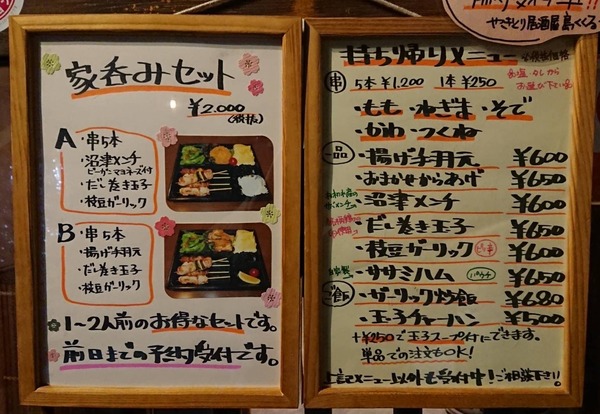 家呑みセット
¥2,000
(税抜)
A
・串5本
・沼津メンチ
ピーガーマヨネーズ付
・だし巻き玉子
・枝豆ガーリック
B
・串5本
・揚げ手羽元
・だし巻き玉子
・枝豆ガーリック
1〜2人前のお得なセットです。
前日までの予約受付です。
やきとり居酒屋 鳥っくる
持ち帰りメニュー
全税抜価格
串 5本¥1,200 1本¥250
・もも・ねぎま・そで
・かわ・つくね
一品
・揚げ手羽元 ¥600
・おまかせからあげ ¥650
・沼津メンチ ¥600
・だし巻き玉子 ¥650
・枝豆ガーリック ¥600
・ササミハム ¥650
ご飯
・ガーリック炒飯 ¥680
・玉子チャーハン ¥500
+¥250で玉子スープ付にできます。
単品での注文もOK!
上記メニュー以外も受付中!ご相談下さい!!